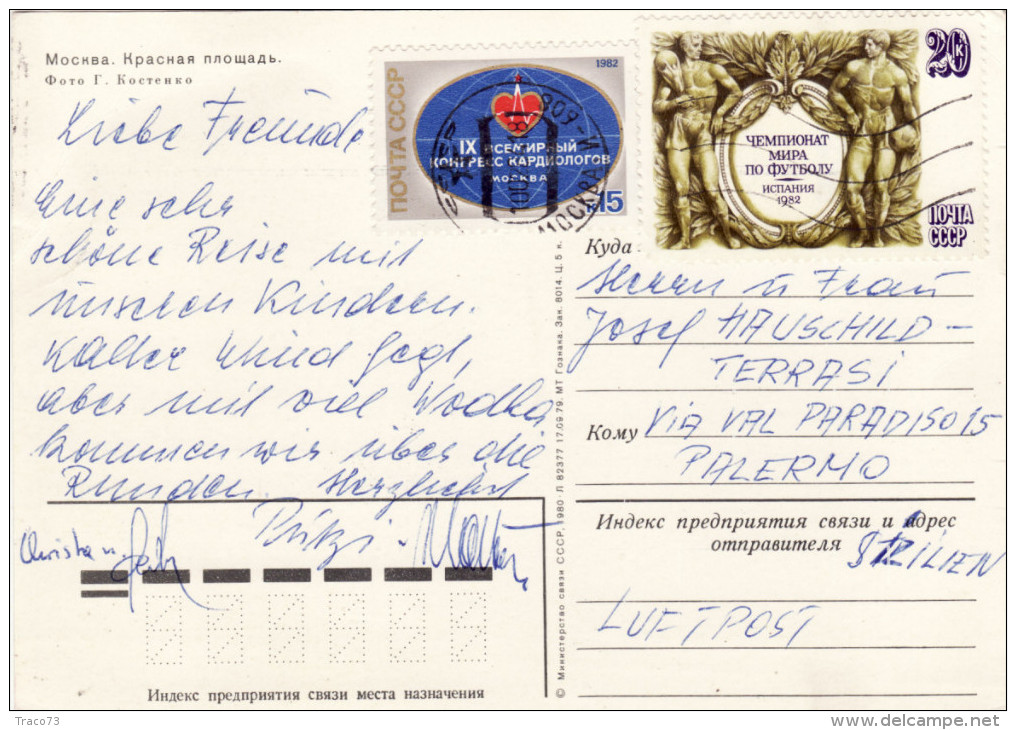 Москва. Красная площадь.
Фото Г. Костенко
Liebe Freunde
Eine sehr
schöne Reise mit
unseren Kindern.
Kalter Wind fegt,
aber mit viel Wodka
kommen wir über die
Runden. Herzlichst
Christa u.
ПОЧТА СССР
1982
IX ВСЕМИРНЫЙ
КОНГРЕСС КАРДИОЛОГОВ
МОСКВА
15
МОСКВА
20 к
ЧЕМПИОНАТ
МИРА
ПО ФУТБОЛУ
ИСПАНИЯ
1982
ПОЧТА
СССР
Куда
Herrn u Frau
Josef HAUSCHILD-
TERRASI
Кому VIA VAL PARADISO 15
PALERMO
Индекс предприятия связи и адрес
отправителя
SIZILIEN
LUFTPOST
Индекс предприятия связи места назначения
© Министерство связи СССР, 1980 · Л 82377 17.09.79. МТ Гознака. Зак. 8014. Ц. 5 к.
Traco73
www.delcampe.net